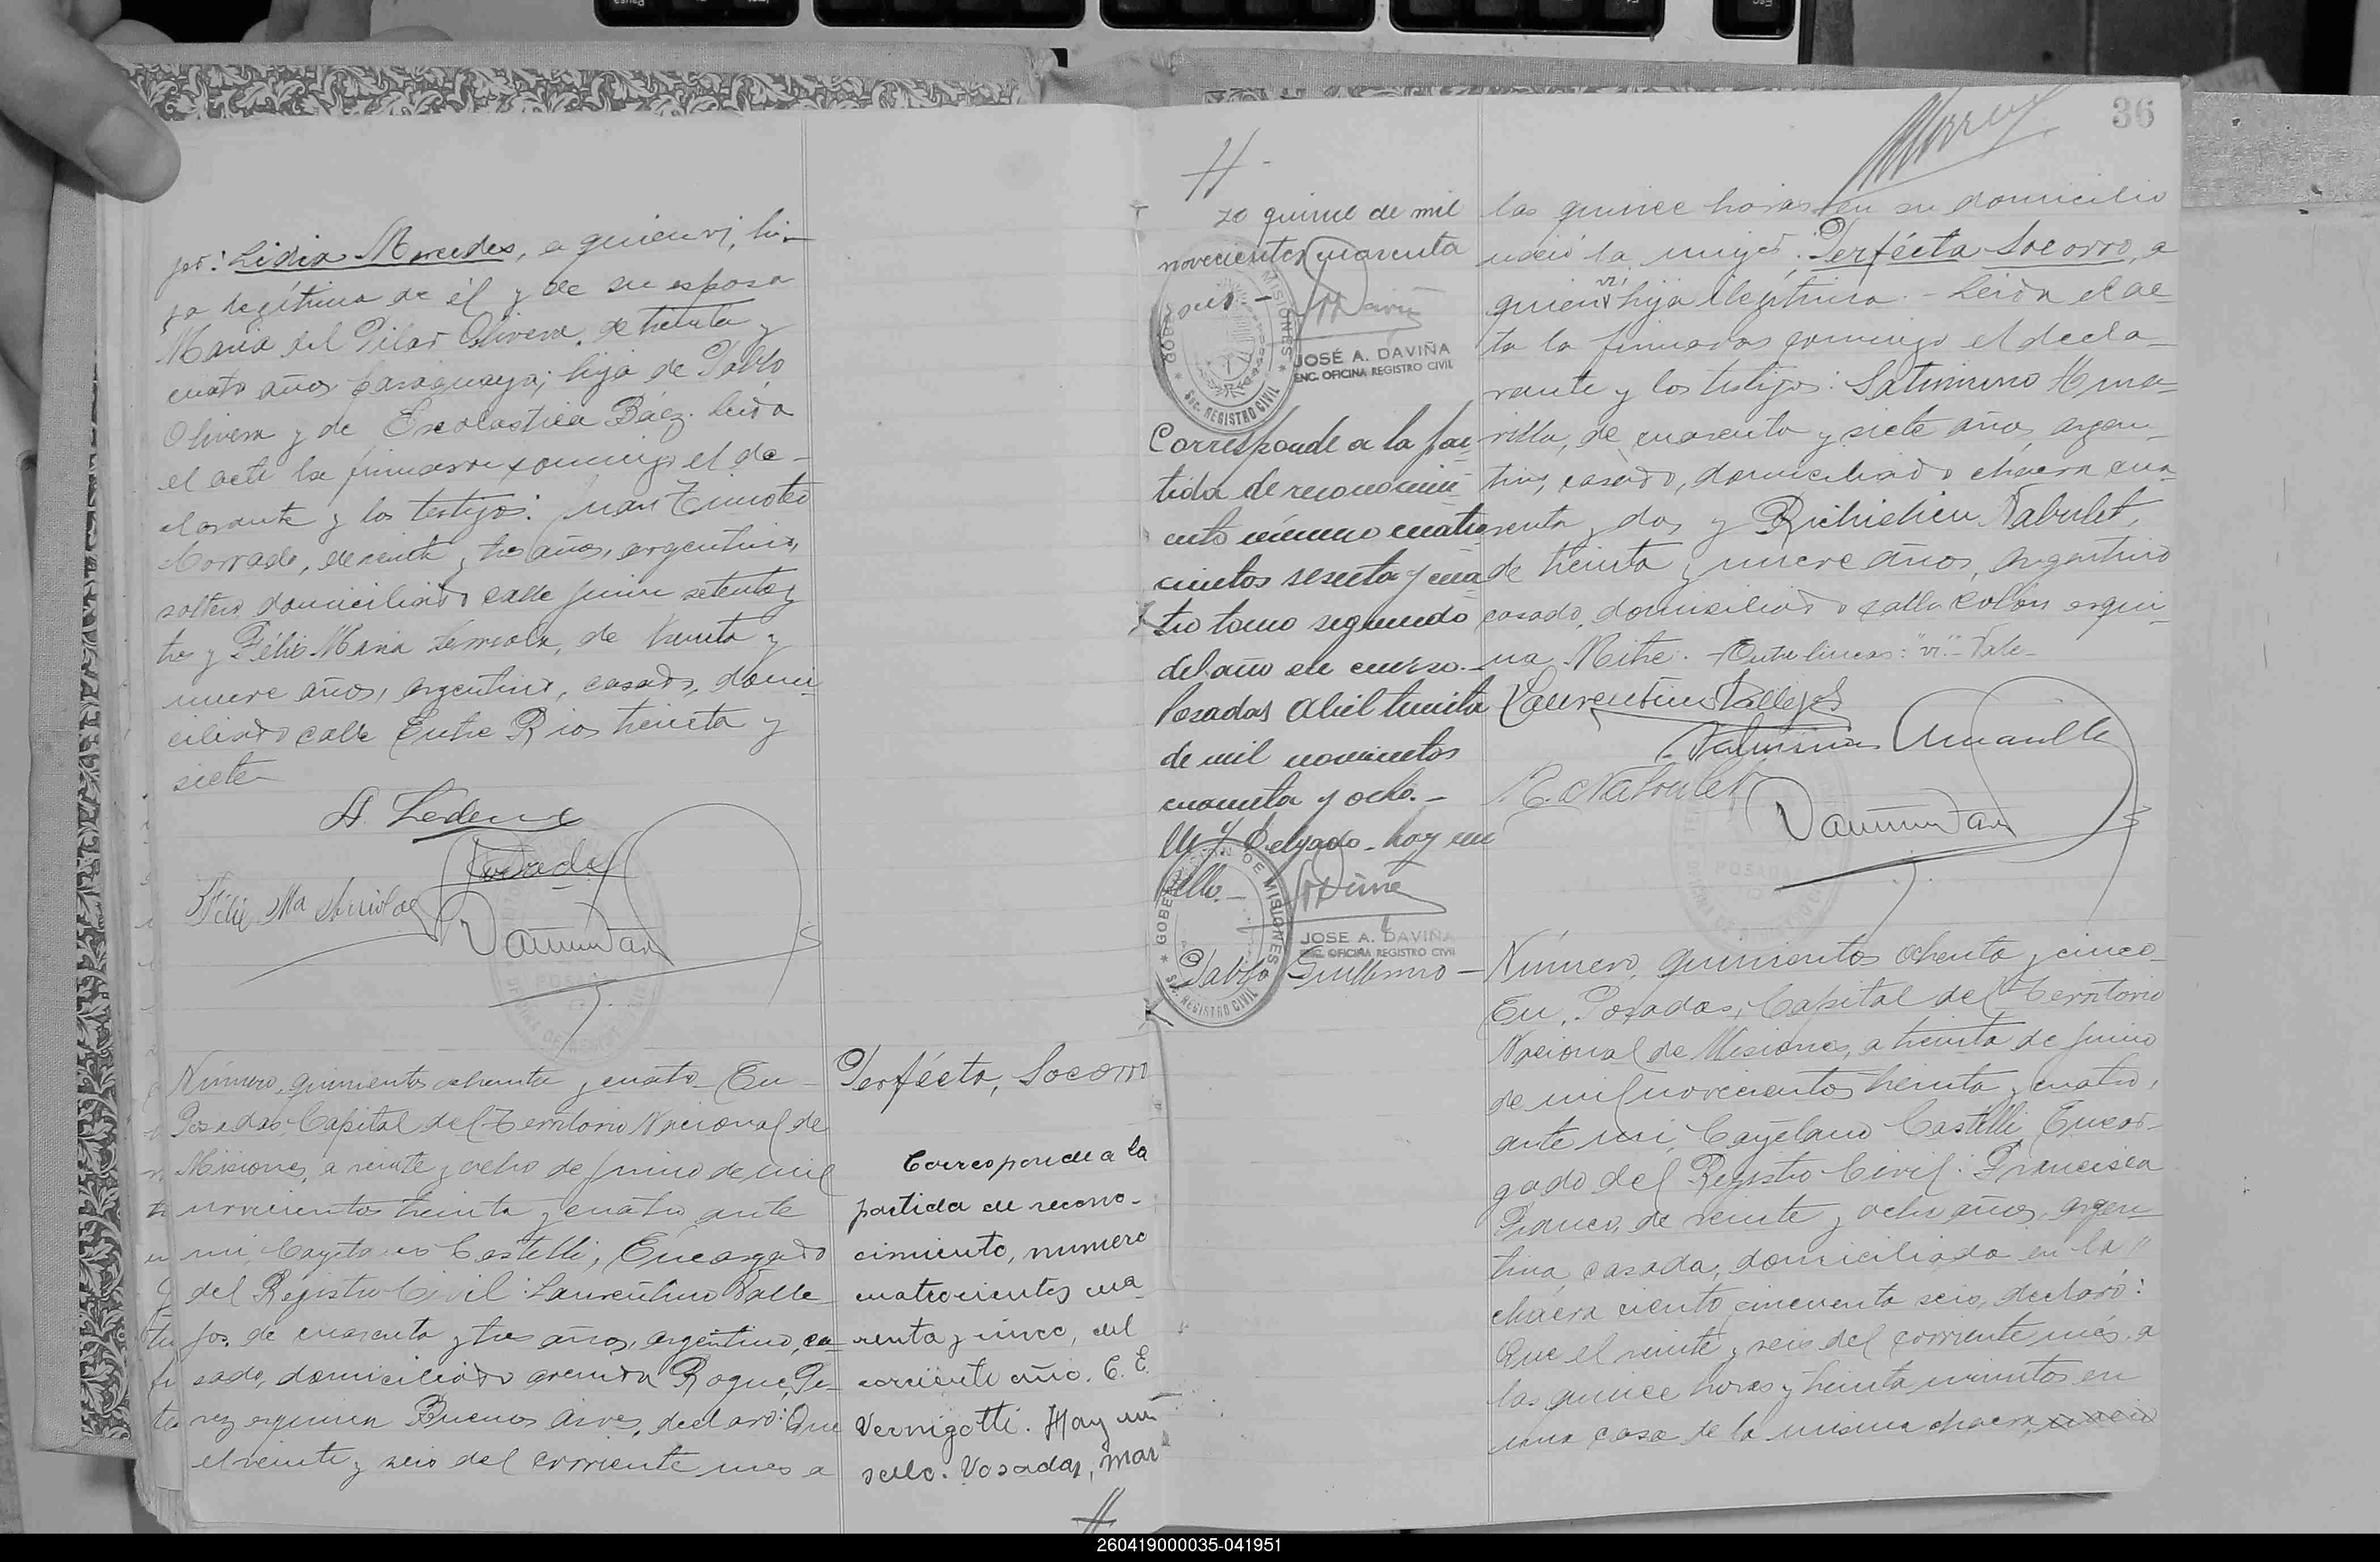 jer: Lidia Mercedes, a quien vi, hi-
ja legítima de él y de su esposa
Maria del Pilar Olivera, de treinta y
cuatro años paraguaya; hija de Pablo
Olivera y de Escolastica Báez. Leida
el acta la firmaron conmigo el de-
clarante y los testigos: Juan Timoteo
Corrado, de veinte y tres años, argentino,
soltero, domiciliado calle Junin setenta y
tres y Félix Maria Arreola, de treinta y
nueve años, argentino, casado, domi-
ciliado calle Entre Rios treinta y
siete
A. Ledesma
Félix Ma Arriola
Número quinientos ochenta y cuatro - En
Posadas Capital del Territorio Nacional de
Misiones, a veinte y ocho de Junio de mil
novecientos treinta y cuatro ante
mi, Cayetano Castelli, Encargado
del Registro Civil: Laurentino Valle-
jos, de cuarenta y tres años, argentino, ca-
sado, domiciliado avenida Roque Pe-
rez esquina Buenos Aires, declaró: Que
el veinte y seis del corriente mes a
Perfécta, Socorro
Corresponde a la
partida de recono-
cimiento, numero
cuatrocientos cua-
renta y cinco, del
corriente año. C. E.
Vernigotti. Hay un
sello. Posadas, mar
#
36
#-
zo quince de mil
novecientos cuarenta
y seis -
JOSÉ A. DAVIÑA
ENC. OFICINA REGISTRO CIVIL
Corresponde a la par
tida de reconocimi
ento número cuatro
cientos sesenta y cua
tro tomo segundo
del año en curso.-
Posadas Abril treinta
de mil novecientos
cuarenta y ocho.-
M. Y. Delgado - hay un
sello.-
JOSE A. DAVIÑA
ENC. OFICINA REGISTRO CIVIL
Pablo Guillermo -
las quince horas en su domicilio
nació la mujer: Perfécta Socorro, a
quien vi, hija ilegítima. - Leida el ac
ta la firmaron conmigo el decla-
rante y los testigos: Saturnino Ama-
rilla, de cuarenta y siete años, argen-
tino, casado, domiciliado chacra cua-
renta y dos y Richielieu Nabulet,
de treinta y nueve años, argentino
casado, domiciliado calle Colón esqui-
na Mitre. - Entre lineas: "vi" - Vale-
Laurentino Vallejos
Saturnino Amarilla
R. C. Nabulet
Número quinientos ochenta y cinco-
En Posadas, Capital del Territorio
Nacional de Misiones, a treinta de Junio
de mil novecientos treinta y cuatro,
ante mi, Cayetano Castelli, Encar-
gado del Registro Civil: Francisca
Franco, de veinte y ocho años, argen-
tina, casada, domiciliada en la
chacra ciento cincuenta seis, declaró:
Que el veinte y seis del corriente mes, a
las quince horas y treinta minutos en
una casa de la misma chacra,
260419000035-041951